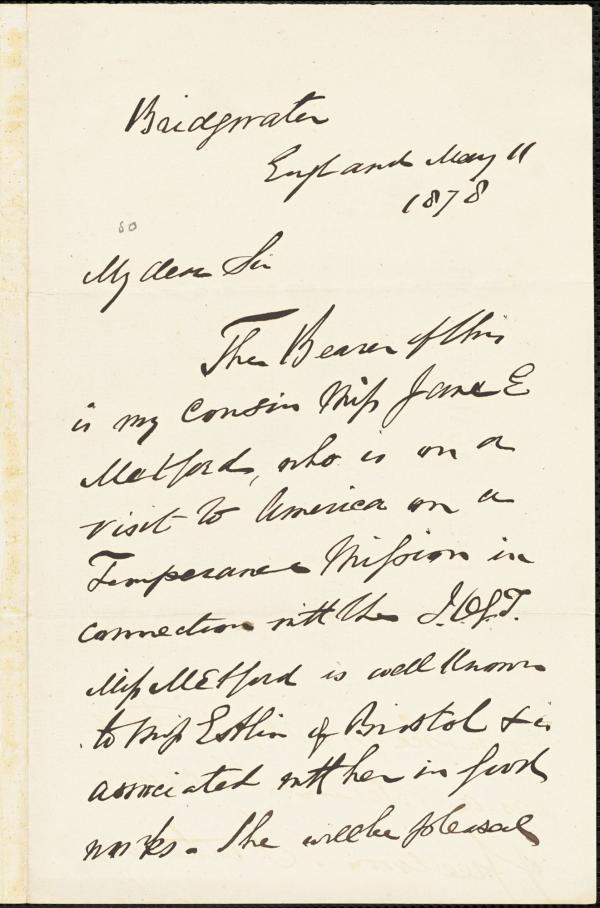 Bridgwater
England May 11
1878
80
My dear Sir
The Bearer of this
is my cousin Miss Jane E
Metford, who is on a
visit to America on a
Temperance Mission in
connection with the I.O.G.T.
Miss Metford is well known
to Miss Estlin of Bristol & is
associated with her in good
works. She will be pleased